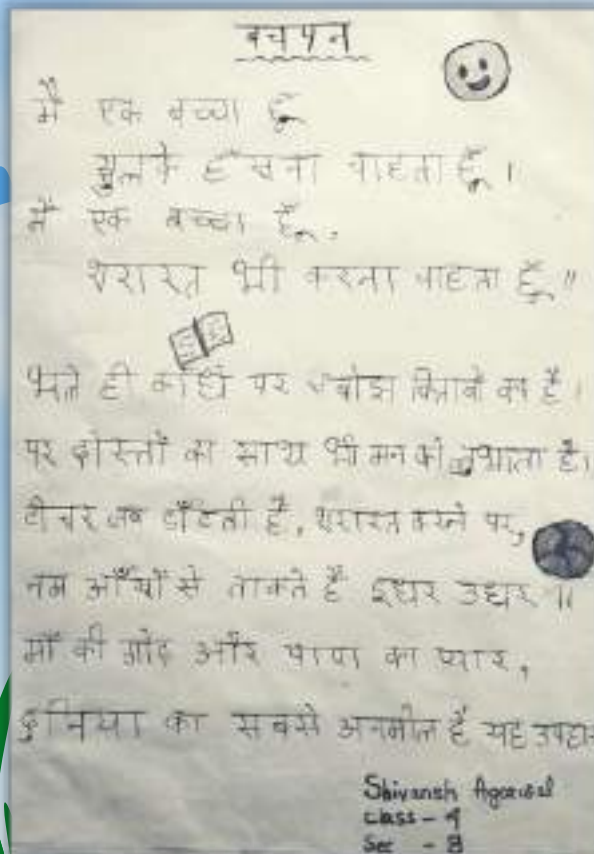 बचपन
मैं एक बच्चा हूँ
खुलके हँसना चाहता हूँ।
मैं एक बच्चा हूँ,
शरारत भी करना चाहता हूँ॥
भले ही काँधे पर बोझ किताबों का है।
पर दोस्तों का साथ भी मन को लुभाता है।
टीचर जब डाँटती है, शरारत करने पर,
नम आँखों से ताकते हैं इधर उधर॥
माँ की गोद और पापा का प्यार,
दुनिया का सबसे अनमोल है यह उपहार
Shivansh Agarwal
class - 4
Sec - B